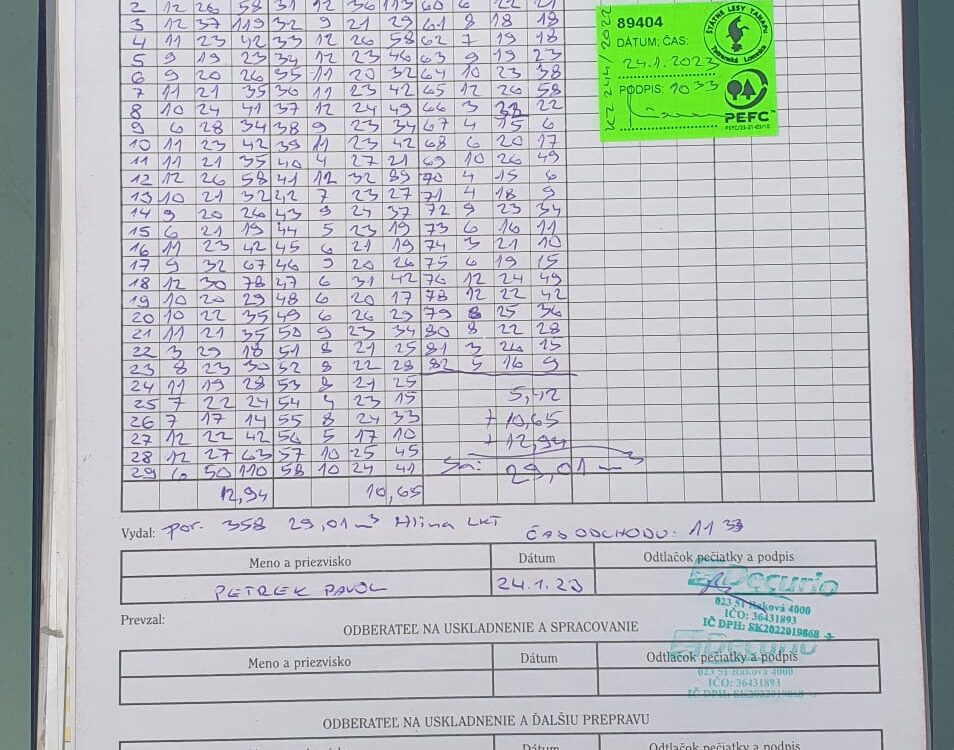 3 12 37 119 32 9 21 29 61 8 18 18
4 11 23 42 33 12 26 58 62 7 19 18
5 9 19 23 34 12 23 46 63 9 19 23
6 9 20 26 35 11 20 32 64 10 23 38
7 11 21 35 36 11 23 42 65 12 26 58
8 10 24 41 37 12 24 49 66 3 22
9 6 28 34 38 9 23 34 67 4 15 6
10 11 23 42 39 11 23 42 68 6 20 17
11 11 21 35 40 4 27 21 69 10 26 49
12 12 26 58 41 12 32 89 70 4 15 6
13 10 21 32 42 7 23 27 71 4 18 9
14 9 20 26 43 9 24 37 72 9 23 34
15 6 21 19 44 5 23 19 73 6 16 11
16 11 23 42 45 6 21 19 74 3 21 10
17 9 32 67 46 9 20 26 75 6 19 15
18 12 30 78 47 6 31 42 76 12 24 49
19 10 20 29 48 6 20 17 78 12 22 42
20 10 22 35 49 6 26 29 79 8 25 36
21 11 21 35 50 9 23 34 80 8 22 28
22 3 29 18 51 8 21 25 81 3 26 15
23 8 23 30 52 8 22 28 82 5 16 9
24 11 19 28 53 8 21 25
5,42
25 7 22 24 54 4 23 15
26 7 17 14 55 8 24 33 + 10,65
27 12 22 42 56 5 17 10 + 12,94
28 12 27 63 57 10 25 45
29 6 50 110 58 10 24 41 29,01 m³
12,94 10,65
89404
ŠTÁTNE LESY TANAPU
Tatranská Lomnica
DÁTUM, ČAS:
24.1.2023
PODPIS: 10 33
PEFC
PEFC/23-21-03/10
KZ 244/2022
Vydal: por. 358 29,01 m³ Hlina LKT
ČAS ODCHODU: 11 33
Meno a priezvisko Dátum Odtlačok pečiatky a podpis
PETREK PAVOL 24.1.23
Decurio
023 51 Raková 4000
IČO: 36431893
IČ DPH: SK2022019868
Prevzal:
ODBERATEĽ NA USKLADNENIE A SPRACOVANIE
Meno a priezvisko Dátum Odtlačok pečiatky a podpis
023 51 Raková 4000
IČO: 36431893
IČ DPH: SK2022019868
ODBERATEĽ NA USKLADNENIE A ĎALŠIU PREPRAVU
Meno a priezvisko Dátum Odtlačok pečiatky a podpis